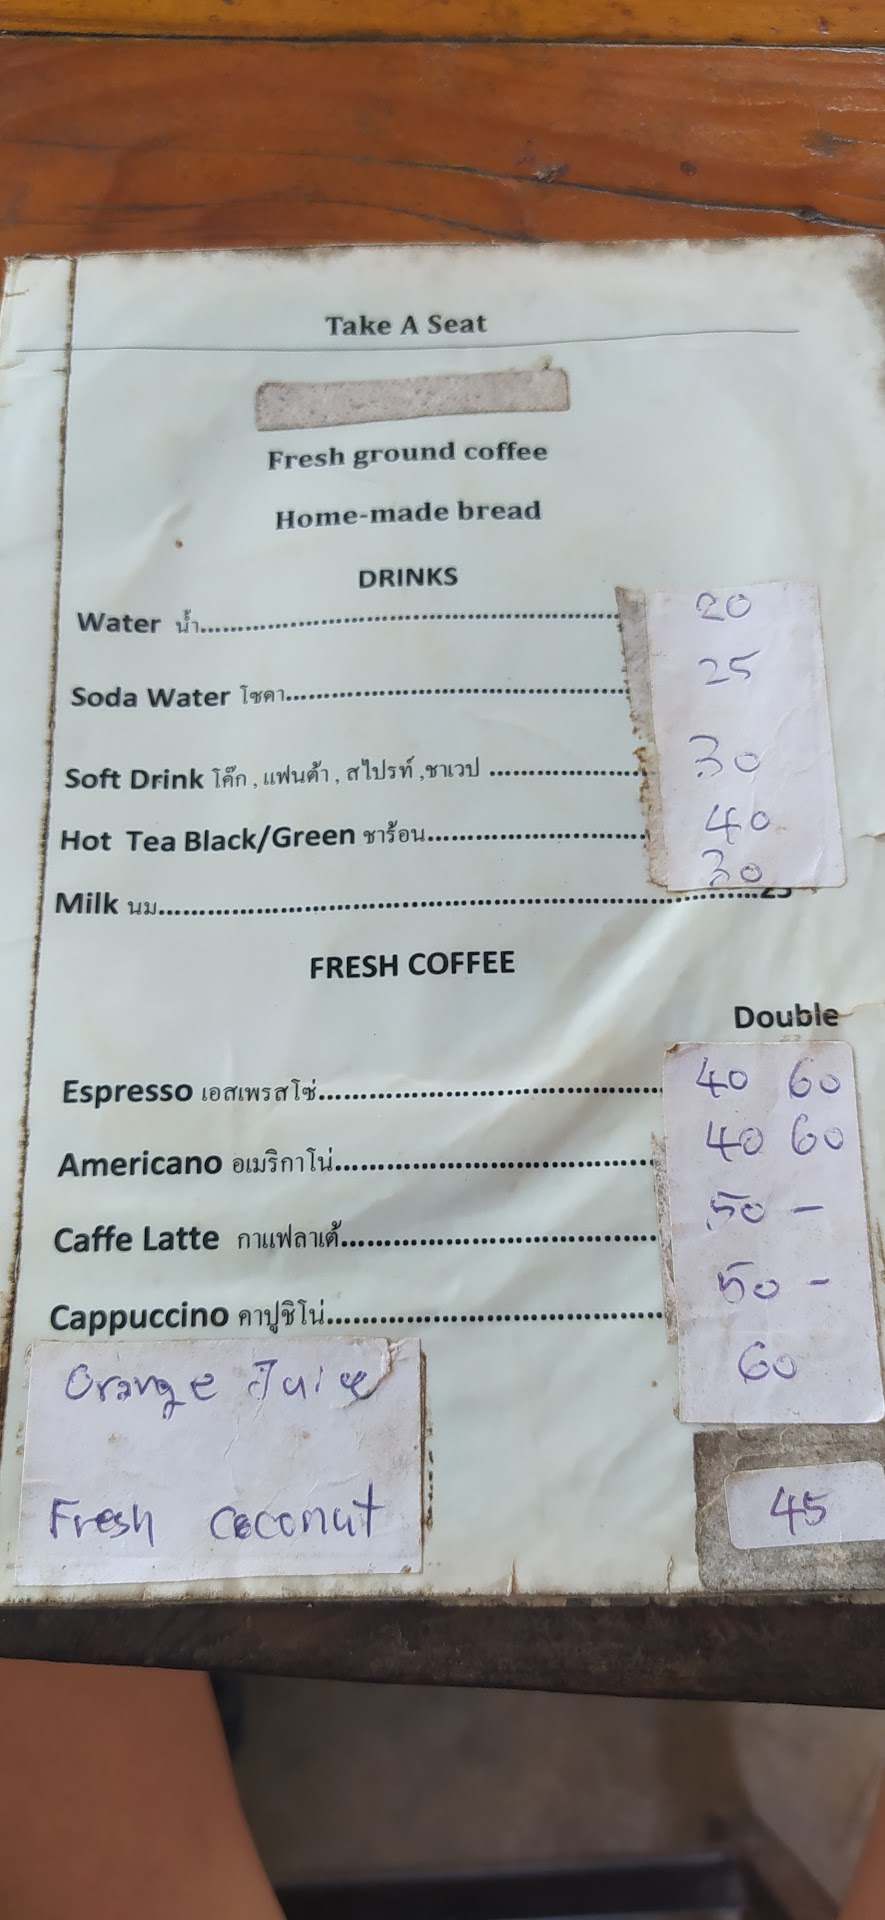 Take A Seat
Fresh ground coffee
Home-made bread
DRINKS
Water น้ำ.......................................................... 20
Soda Water โซดา............................................... 25
Soft Drink โค๊ก , แฟนต้า , สไปรท์ ,ชาเวป ..................... 30
Hot Tea Black/Green ชาร้อน.............................. 40
30
Milk นม...............................................................................25
FRESH COFFEE
Double
Espresso เอสเพรสโซ่............................................. 40 60
Americano อเมริกาโน่.......................................... 40 60
Caffe Latte กาแฟลาเต้......................................... 50 -
Cappuccino คาปูชิโน่........................................... 50 -
Orange Juice 60
Fresh coconut 45